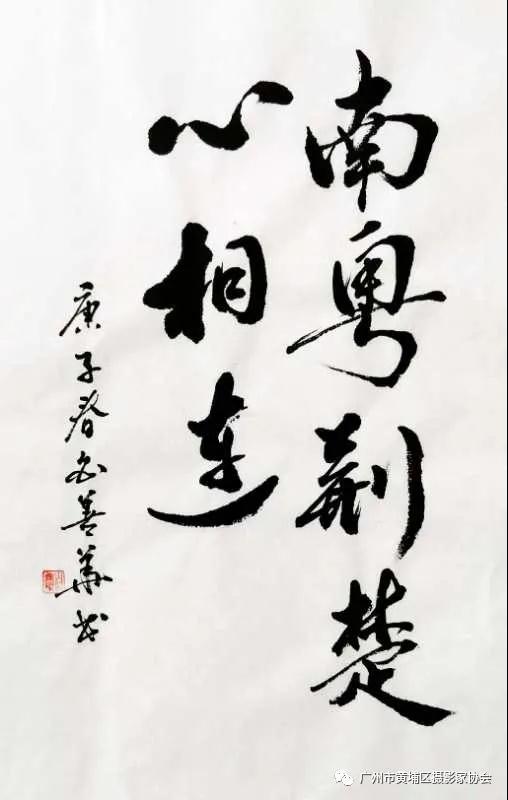 南粤荆楚
心相连
庚子春
善华书
广州市黄埔区摄影家协会